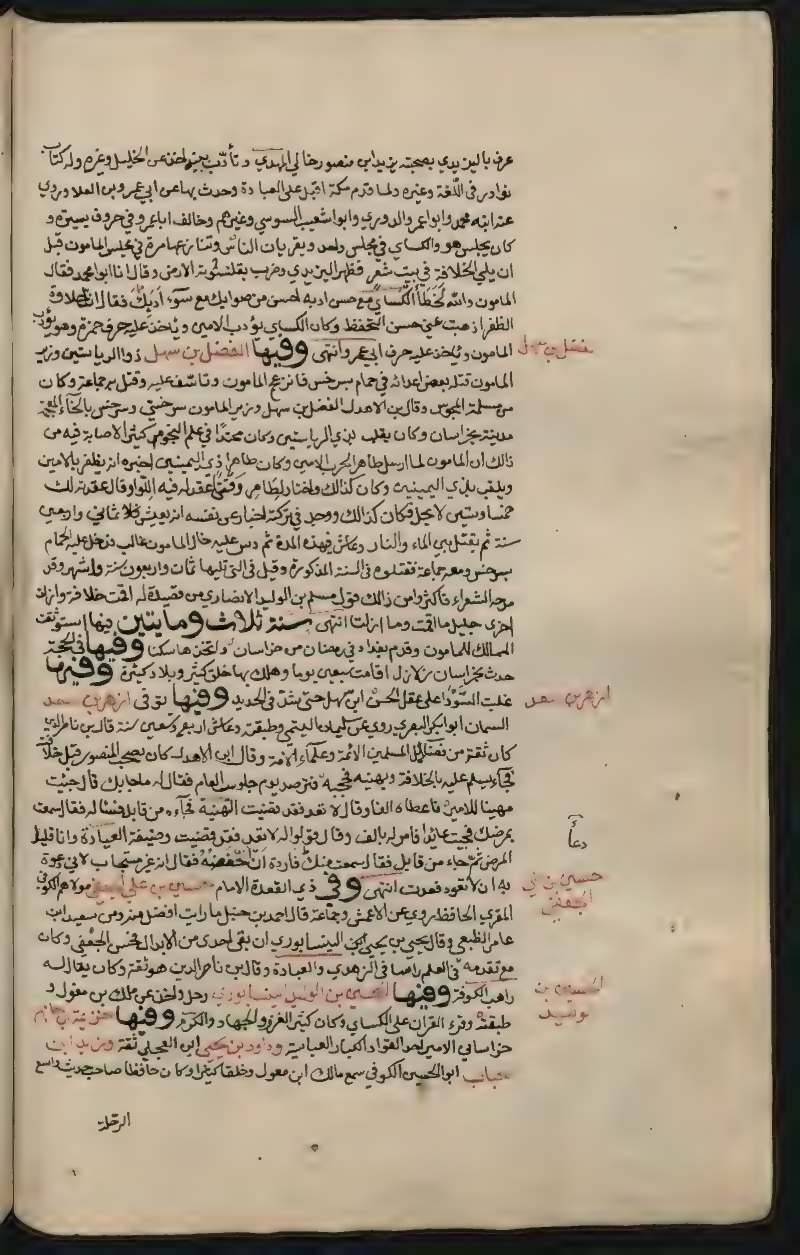 عرف باليزيدي بصحبته يزيد ابن منصور خال المهدي وتأدب بنيه اخذ عن الخليل وغيره وله كتاب
نوادر في اللغة وغيره ولما قدم مكة اقبل على العبادة وحدث بها عن ابي عمرو بن العلا وروي
عنه ابنه محمد وابو عمر والدوري وابو شعيب السوسي وغيرهم وخالف ابا عمرو في حروف يسيرة و
كان يجلس هو والكساي في مجلس واحد ويقريان الناس وتنازعا مرة في مجلس المامون قبل
ان يلي الخلافة في بيت شعر فظهر اليزيدي وضرب بقلنسوته الارض وقال انا ابو محمد فقال
المامون والله لخطأ الكساي مع حسن ادبه احسن من صوابك مع سوء ادبك فقال ان حلاوة
الظفر اذهبت عني حسن التحفظ وكان الكساي يؤدب الامين وياخذ عليه حرف حمزة وهو يؤدب
المامون وياخذ عليه حرف ابي عمرو انتهى وفيها الفضل بن سهل ذو الرياستين وزير
المامون قتله بعض اعدائه في حمام بسرخس فانزعج المامون وتاسف عليه وقتل به جماعة وكان
من مسلمة المجوس وقال بن الاهدل الفضل بن سهل وزير المامون سرخسي وسرخس بالخاء المعجمة
مدينة بخراسان وكان يلقب بذي الرياستين وكان محدثا في علم النجوم كثير الاصابة فيه من
ذالك ان المامون لما ارسل طاهر لحرب الامين وكان طاهر ذي اليمينين اخبره انه يظفر بالامين
ويلقب بذي اليمينين وكان كذالك واختار لطاهر وقتا عقد له فيه اللوا وقال عقدته لك
خمسا وستين لا يحل فكان كذالك ووجد في تركته اخبار عن نفسه انه يعيش ثمانى واربعين
سنة ثم يقتل بين الماء والنار وعاش هذه المدة ثم دس عليه خال المامون غالب فدخل عليه الحمام
بسرخس ومعه جماعة فقتلوه في السنة المذكورة وقيل في التي تليها ثمان واربعون سنة واشهر وقد
مدحه الشعراء فاكثروا من ذالك قول مسلم بن الوليد الانصاري من قصيدة له اقمت خلافة وازلت
اخرى جليل ما اقمت وما ازلتا انتهى سنة ثلاث ومايتين فيها استوثقت
الممالك للمامون وقدم بغداد في رمضان من خراسان واتخذها سكنا وفيها في الحجة
حدث بخراسان زلازل اقامت سبعين يوما وهلك بها خلق كثير وبلاد كثيرة وفيها
غلبت السودا على عقل الحسن ابن سهل حتى شد في الحديد وفيها توفى ازهر بن سعد
السمان ابو بكر البصري روى عن سليمان التيمي وطبقته وعاش اربع وتسعين سنة قال بن ناصر الدين
كان ثقة من فضلاء المسلمين الائمة وعلماء الامة وقال ابن الاهدل كان يصحب المنصور قبل خلافته
فجاء يسلم عليه بالخلافة ويهنيه فحجبه فترصد يوم جلوسه العام فقال له ما جابك قال جيت
مهنيا للامير فاعطاه الفا وقال لا تعد فقد قضيت التهنية فجاءه من قابل فسئاله فقال سمعت
بمرضك فجيت عائدا فامر له بالف وقال قولوا له لا تعد فقد قضيت وضيفة العيادة وانا قليل
المرض ثم جاء من قابل فقال سمعت منك دعاء فاردت ان احفضه فقال انه غير مستجاب لاني دعوة
به ان لا تعود فعدت انتهى وفي ذي القعدة الامام حسين بن علي الجعفي مولاهم الكوفي
المقري الحافظ روى عن الاعمش وجماعة قال احمد بن حنبل ما رايت افضل منه ومن سعيد ابن
عامر الظبعي وقال يحيى بن يحيى ابن اليسابوري ان بقى احدى من الابدال فحسين الجعفي وكان
مع تقدمه في العلم راسا في الزهدي والعبادة وقال بن ناصر الدين هو ثقة وكان يقال له
راهب الكوفة وفيها الحسين بن الوليد النيسابوري رحل واخذ عن ملك بن مغول و
طبقته وقرء القران على الكساي وكان كثير الغزو والجهاد والكرم وفيها خزيمة بن خازم
خراساني الامير احد القواد الكبار العباسية وداود بن يحيى ابن العجلي ثقة وزيد ابن
حباب ابو الحسين الكوفي سمع مالك ابن مغول وخلقا كثيرا وكان حافظا صاحب حديث واسع
الرحلة
فضل بن سهل
ازهر بن سعد
دعاءً
حسين بن علي
الجعفي
الحسين بن
الوليد